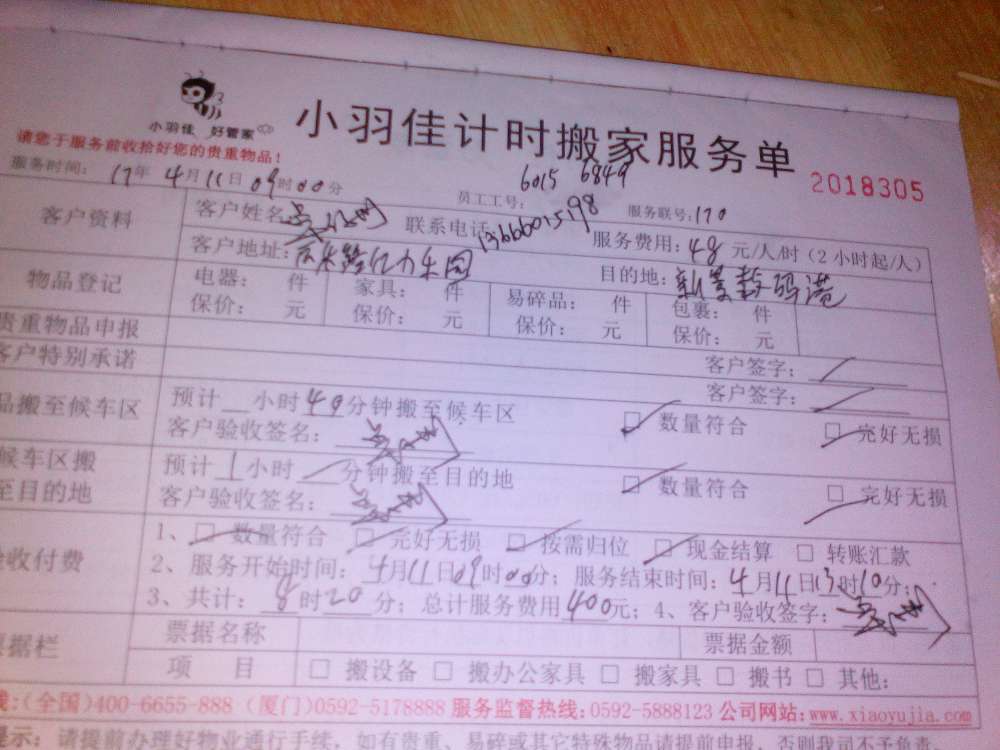 小羽佳 好管家
小羽佳计时搬家服务单
2018305
请您于服务前收拾好您的贵重物品！
服务时间：17年4月11日09时00分
员工工号：6015 6849
服务联号：170
客户资料
客户姓名
联系电话：13666015198
服务费用：48元/人/时（2小时起/人）
客户地址：路亿力乐园
目的地：新景数码港
物品登记
电器： 件 家具： 件 易碎品： 件 包裹： 件
保价： 元 保价： 元 保价： 元 保价： 元
贵重物品申报
客户签字：
客户特别承诺
客户签字：
品搬至候车区
预计 小时40分钟搬至候车区 数量符合 完好无损
客户验收签名：
候车区搬至目的地
预计1小时 分钟搬至目的地 数量符合 完好无损
客户验收签名：
验收付费
1、数量符合 完好无损 按需归位 现金结算 转账汇款
2、服务开始时间：4月11日09时00分；服务结束时间：4月11日13时10分；
3、共计：8时20分；总计服务费用400元；4、客户验收签字：
票据栏
票据名称 票据金额
项 目 搬设备 搬办公家具 搬家具 搬书 其他：
线：(全国)400-6655-888（厦门)0592-5178888 服务监督热线：0592-5888123 公司网站：www.xiaoyujia.com
提示：请提前办理好物业通行手续，如有贵重、易碎或其它特殊物品请提前申报，否则我司不予负责